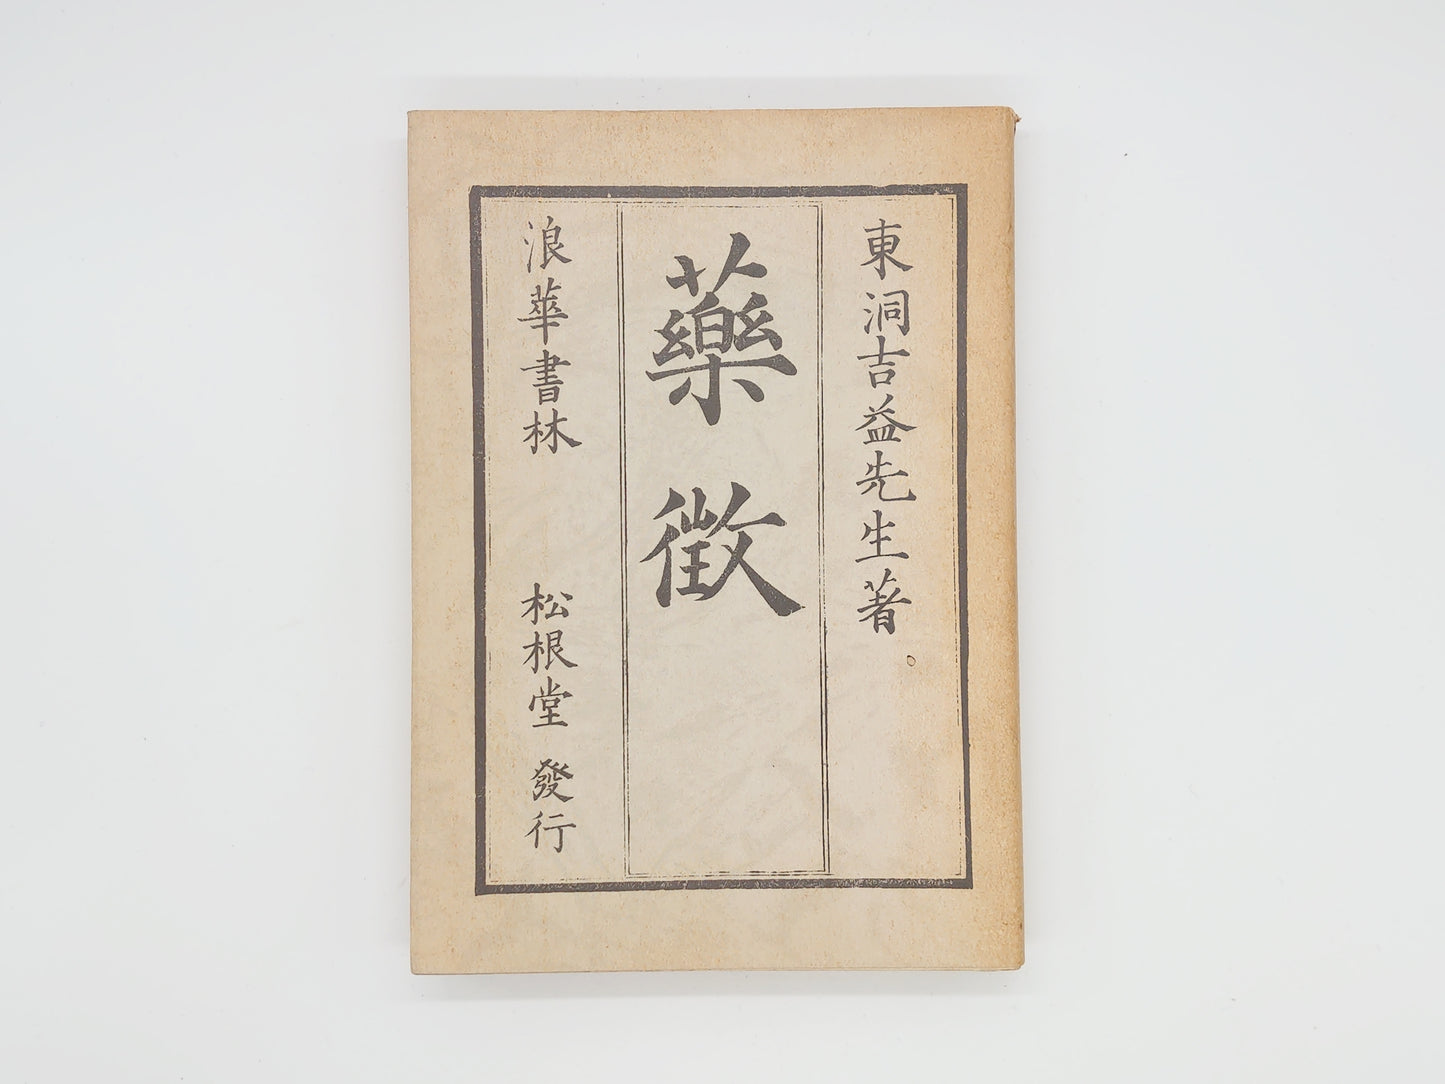 東洞吉益先生著
藥徴
浪華書林 松根堂 發行